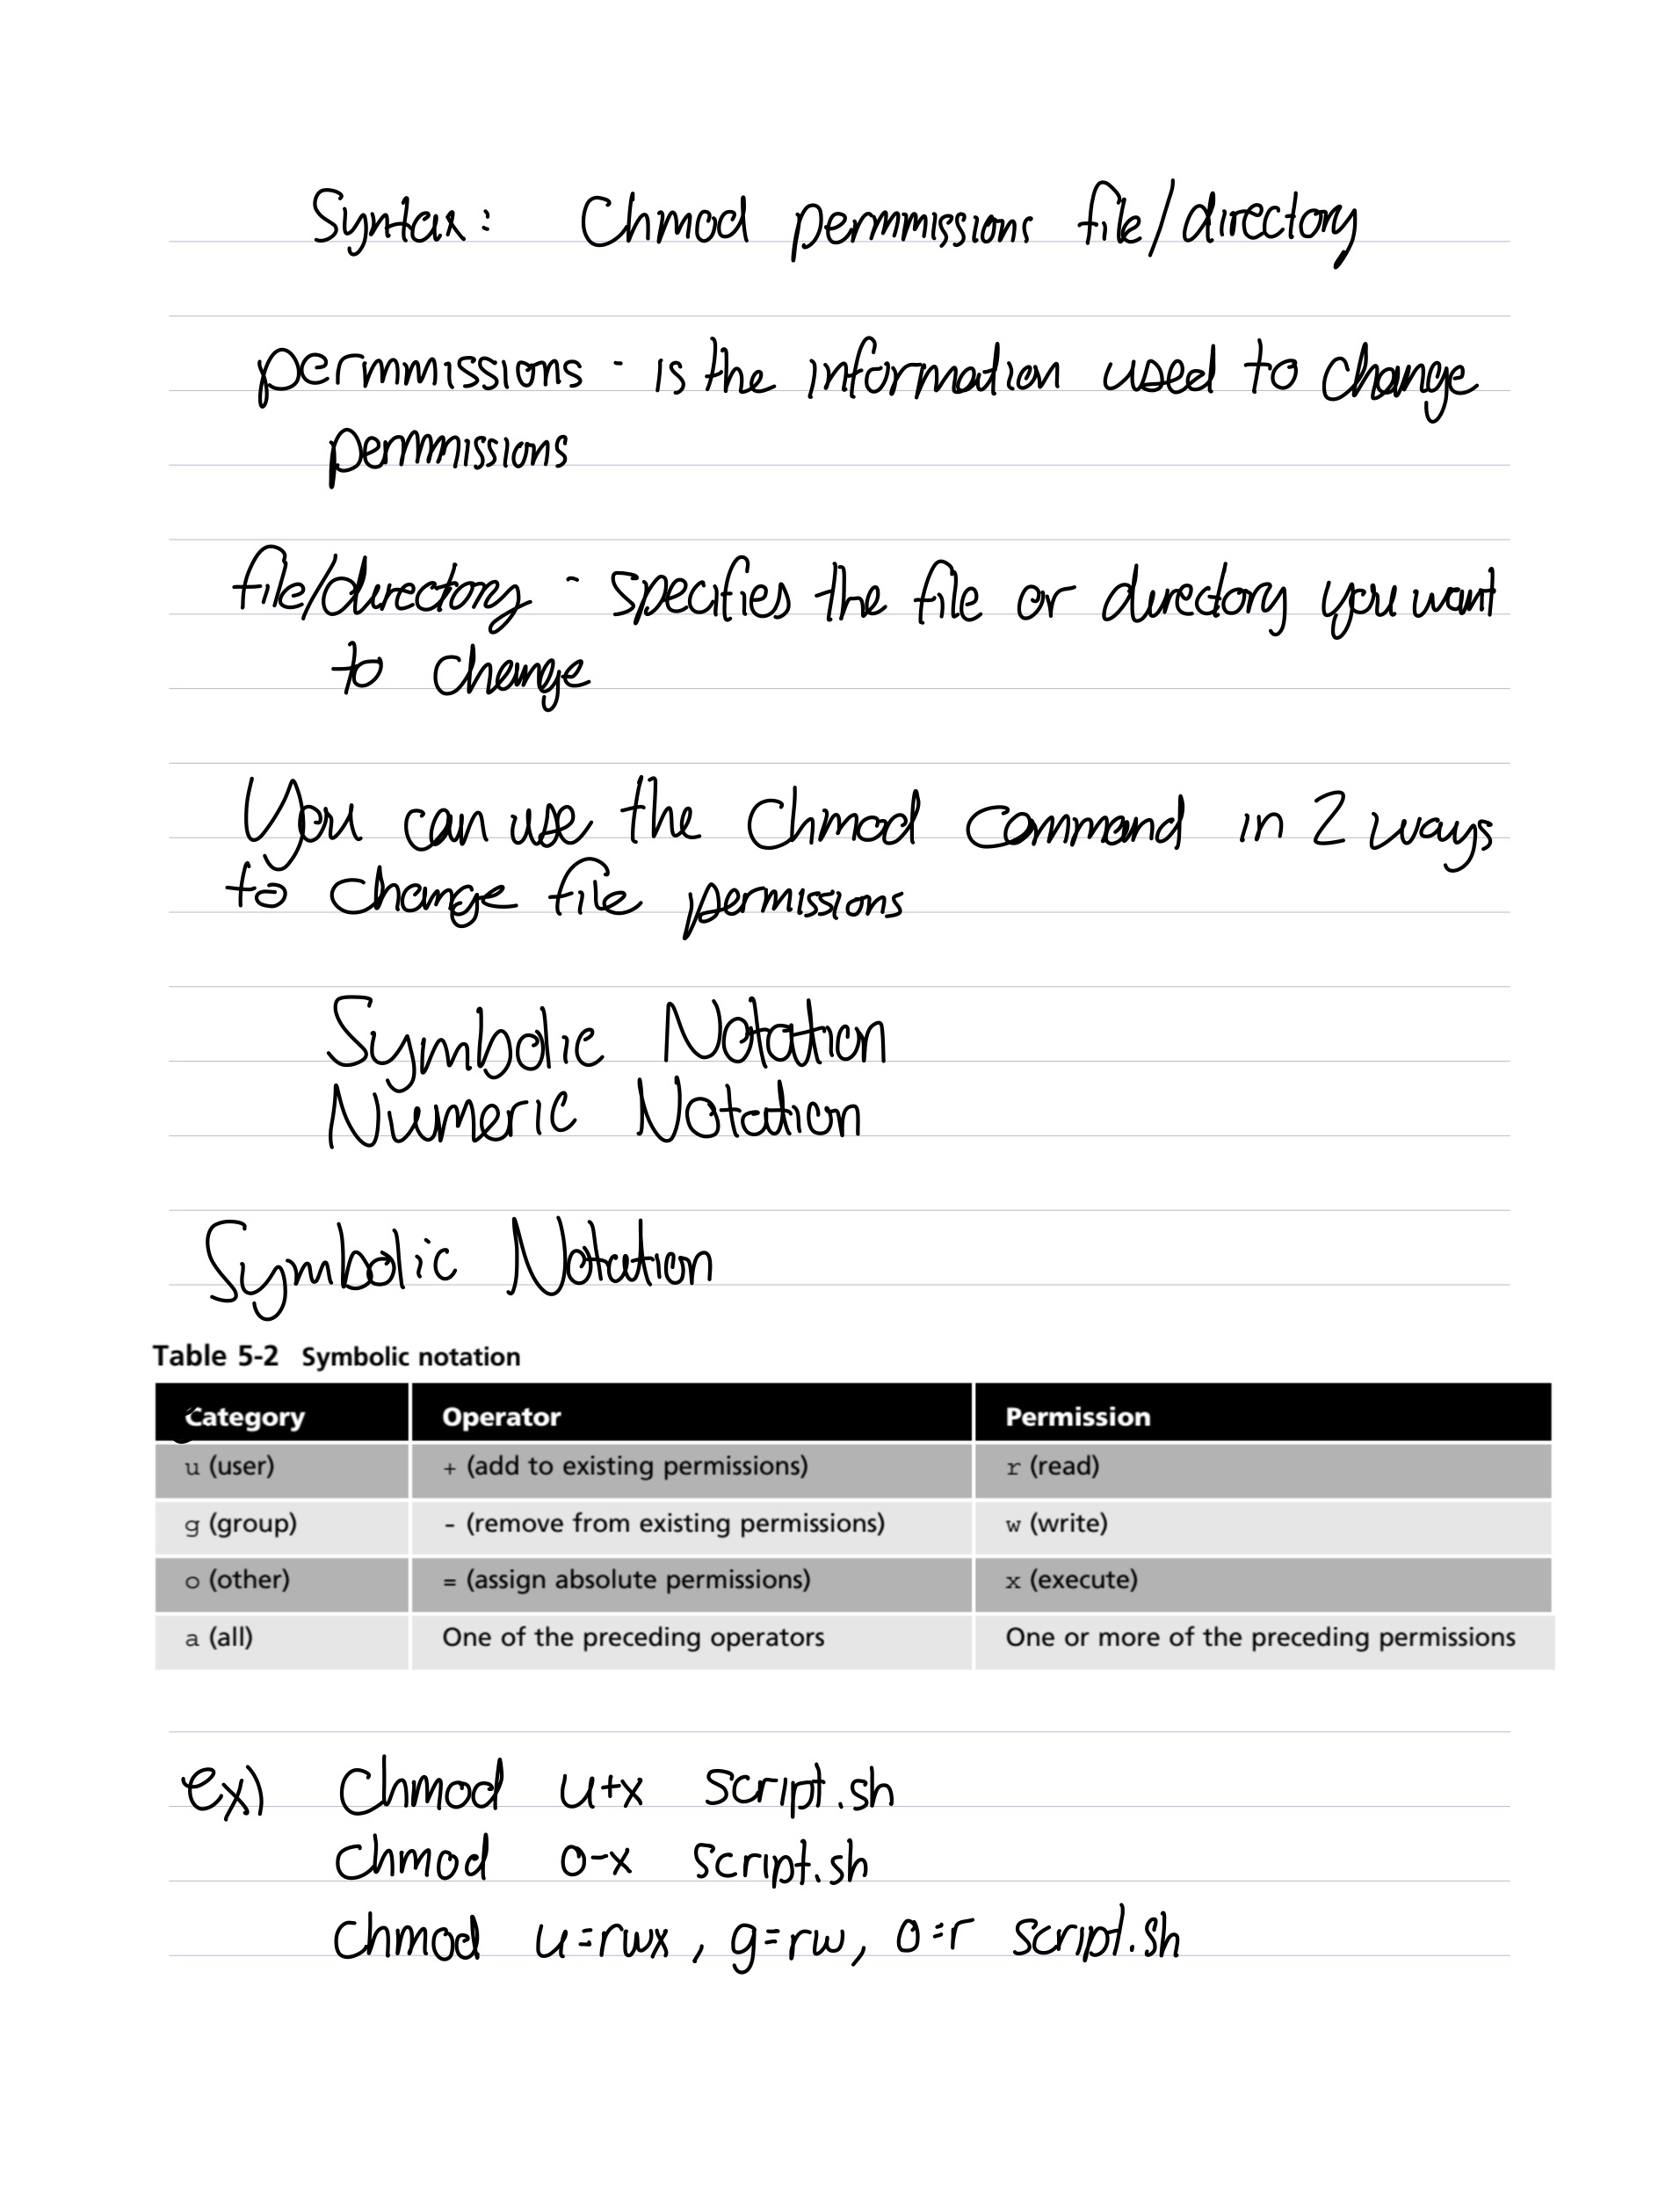 Syntax: Chmod permissions file/directory
permmissions - is the information used to change
permmissions
file/directory - specifies the file or directory you want
to change
You can use the chmod command in 2 ways
to change file permissions
Symbolic Notation
Numeric Notation
Symbolic Notation
Table 5-2 Symbolic notation
Category Operator Permission
u (user) + (add to existing permissions) r (read)
g (group) - (remove from existing permissions) w (write)
o (other) = (assign absolute permissions) x (execute)
a (all) One of the preceding operators One or more of the preceding permissions
ex) Chmod u+x script.sh
chmod o-x script.sh
chmod u=rwx, g=rw, o=r script.sh